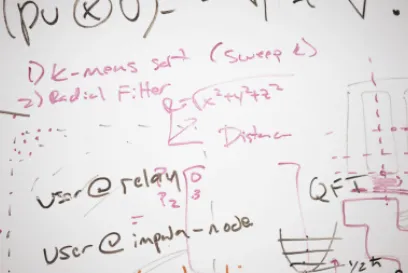 (pu ⊗ U)
1) K-means sort (sweep k)
2) Radial Filter
R=√x²+y²+z²
Distance
user@relay
0
?2 3
QFI
user@impula-node
-1/2